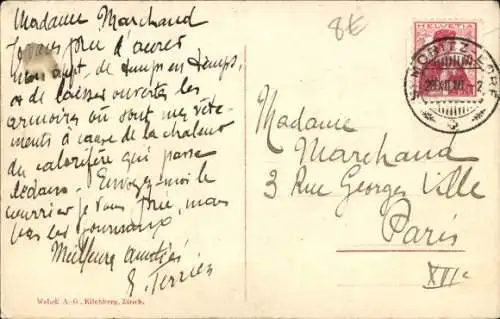 Madame Marchand
Je vous prie d'ouvrir
mon appt. de temps en temps,
et de laisser ouvertes les
armoires où sont mes vête-
ments à cause de la chaleur
du calorifère qui passe
dedans. Envoyez-moi le
courrier je vous prie, mais
pas les journaux.
Meilleures amitiés
E. Terrien
Wehrli A.-G., Kilchberg, Zürich.
8€
HELVETIA
ST. MORITZ-DORF
Madame
Marchand
3 Rue Georges Ville
Paris
XVIe